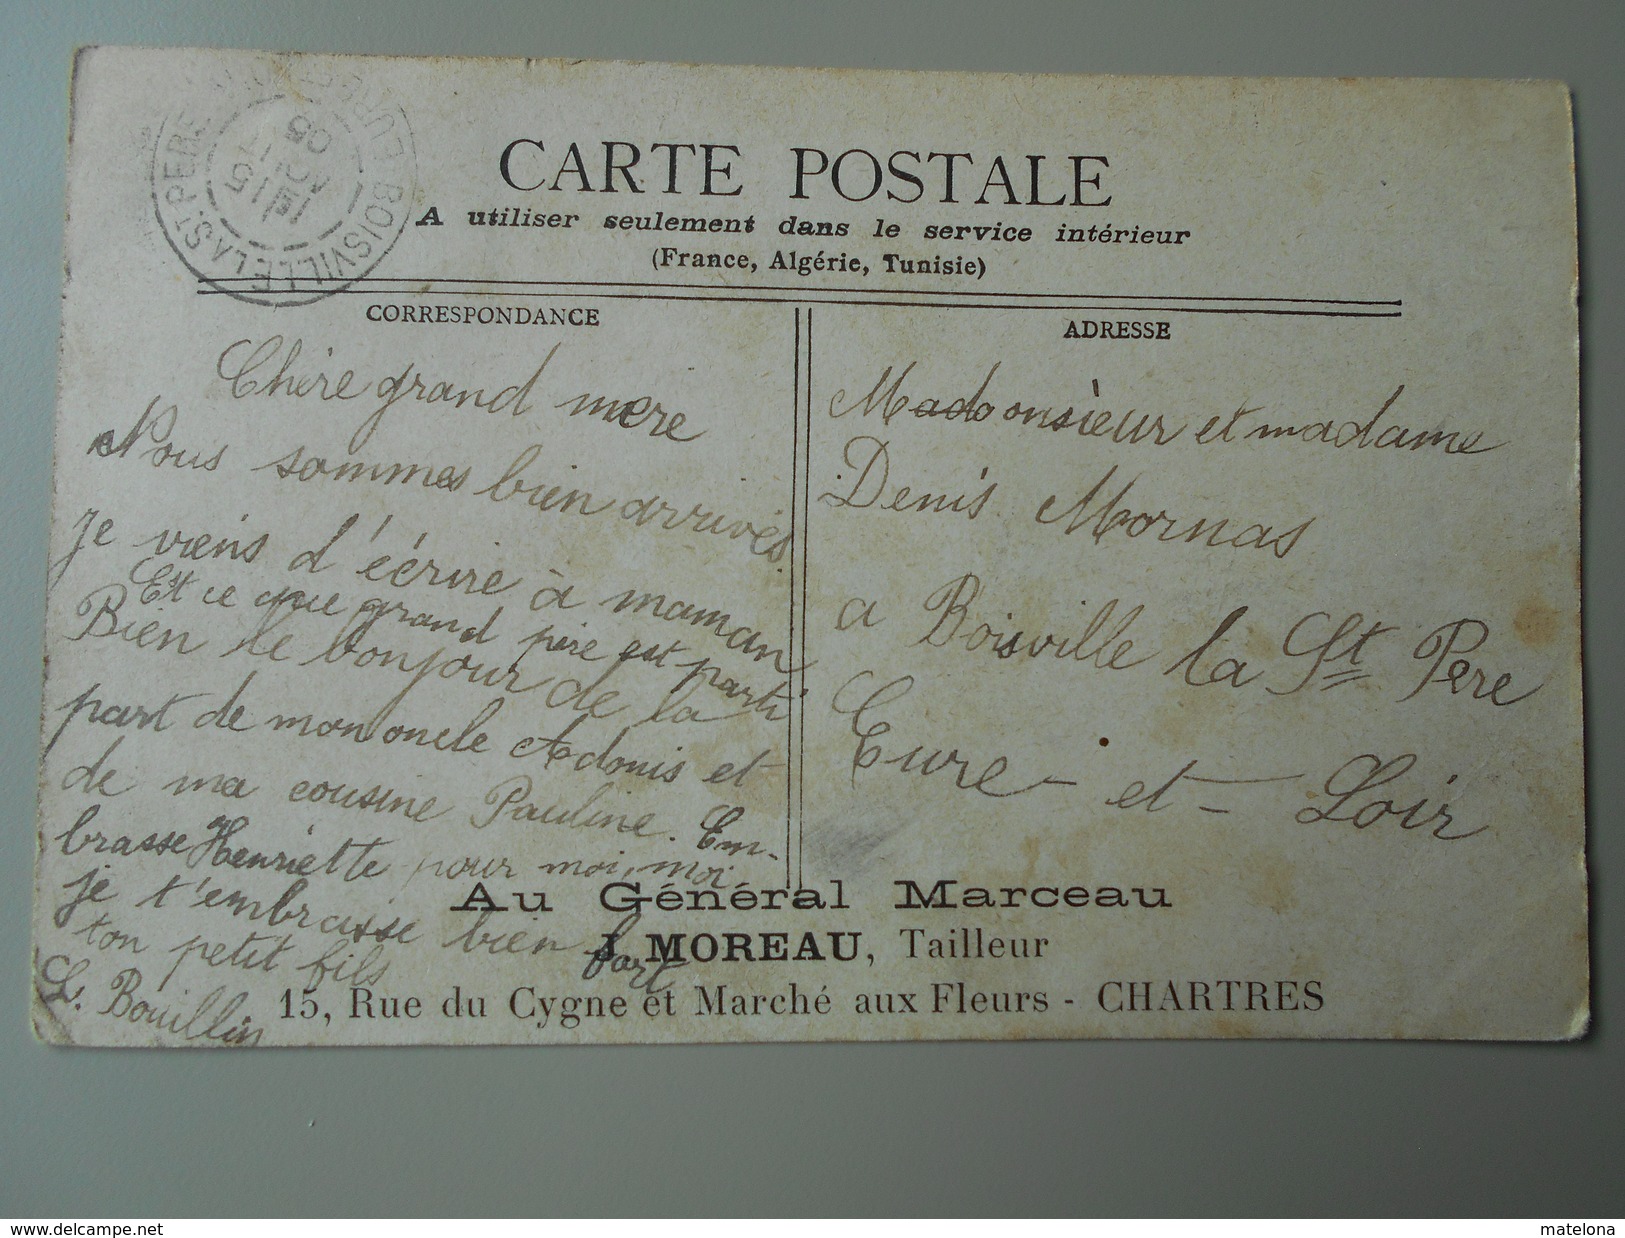 CARTE POSTALE
A utiliser seulement dans le service intérieur
(France, Algérie, Tunisie)
BOISVILLE LA ST PERE
EURE
15
05
CORRESPONDANCE
Chère grand mere
Nous sommes bien arrivés
Je viens d'écrire à maman
Est ce que grand père est parti
Bien le bonjour de la
part de mon oncle Adonis et
de ma cousine Pauline. Em-
brasse Henriette pour moi, moi
je t'embrasse bien fort
ton petit fils
L. Bouillin
ADRESSE
Monsieur et madame
Denis Mornas
a Boisville la St Père
Eure - et - Loir
Au Général Marceau
J. MOREAU, Tailleur
15, Rue du Cygne et Marché aux Fleurs - CHARTRES
www.delcampe.net
matelona